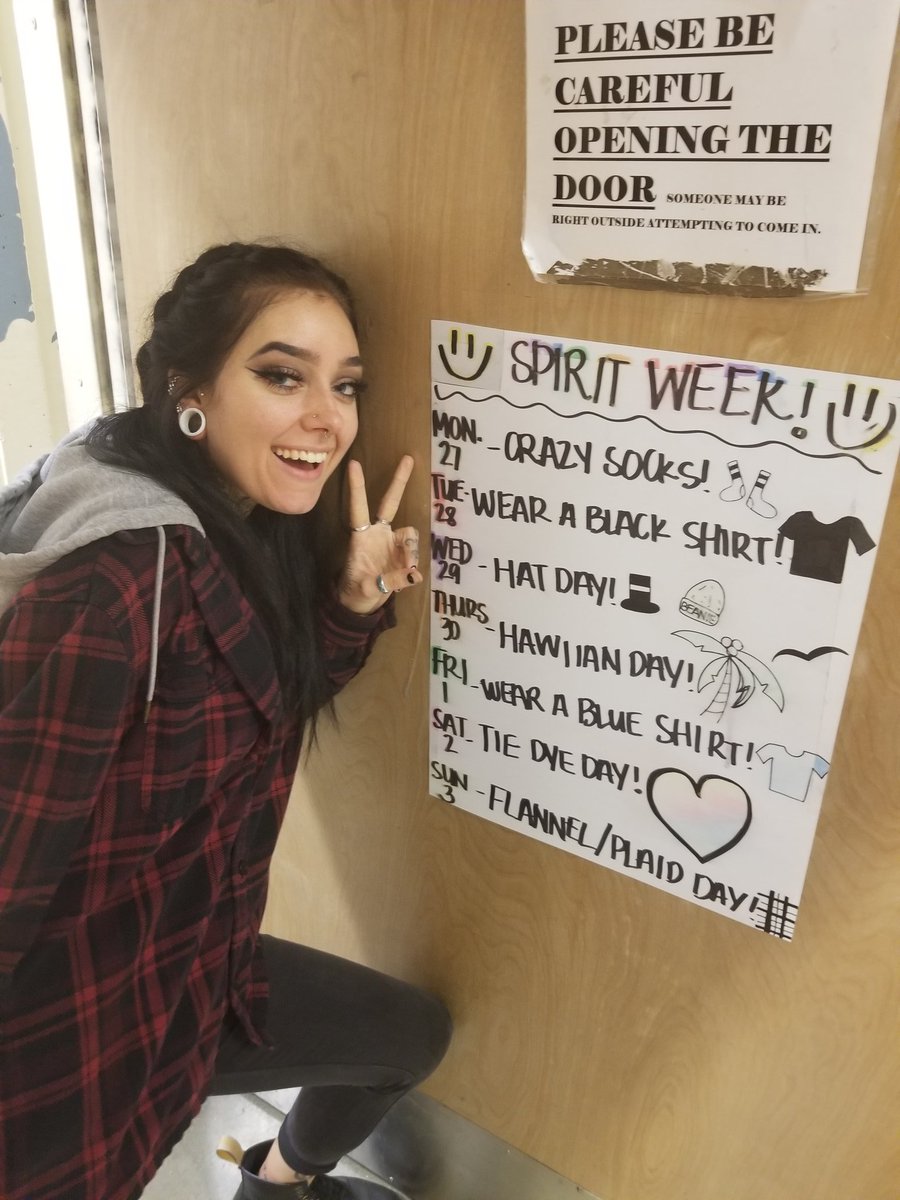 PLEASE BE
CAREFUL
OPENING THE
DOOR SOMEONE MAY BE
RIGHT OUTSIDE ATTEMPTING TO COME IN.
SPIRIT WEEK!
MON. 27 - CRAZY SOCKS!
TUE- 28 WEAR A BLACK SHIRT!
WED 29 - HAT DAY!
BEANIE
THURS 30 - HAWIIAN DAY!
FRI 1 - WEAR A BLUE SHIRT!
SAT. 2 - TIE DYE DAY!
SUN 3 - FLANNEL/PLAID DAY!